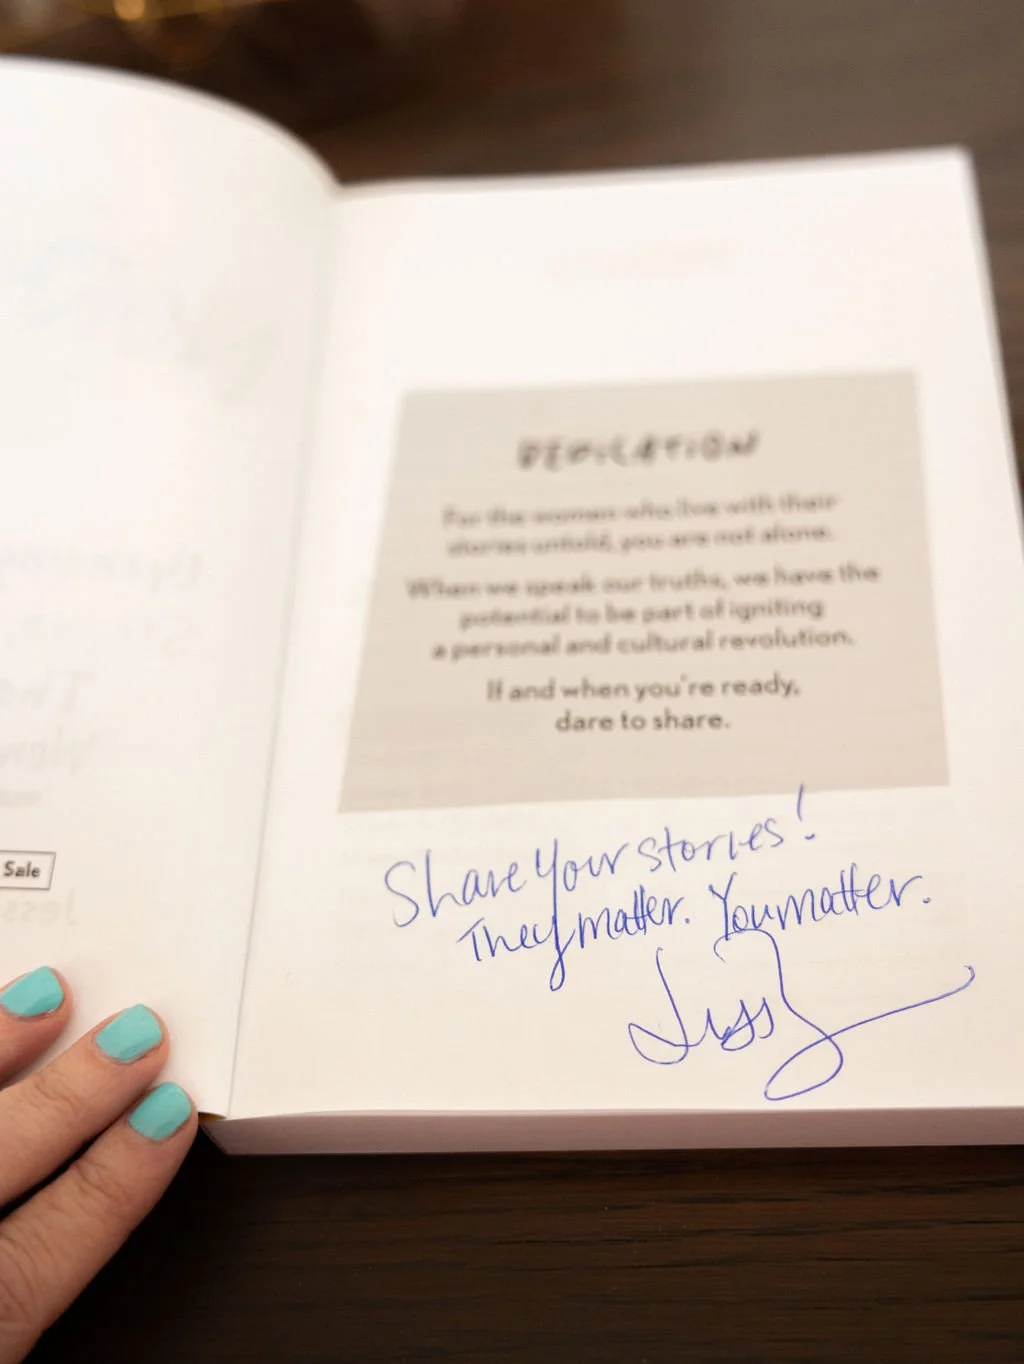 Sale
DEDICATION
For the women who live with their
stories untold, you are not alone.
When we speak our truths, we have the
potential to be part of igniting
a personal and cultural revolution.
If and when you're ready,
dare to share.
Share Your stories!
They matter. You matter.